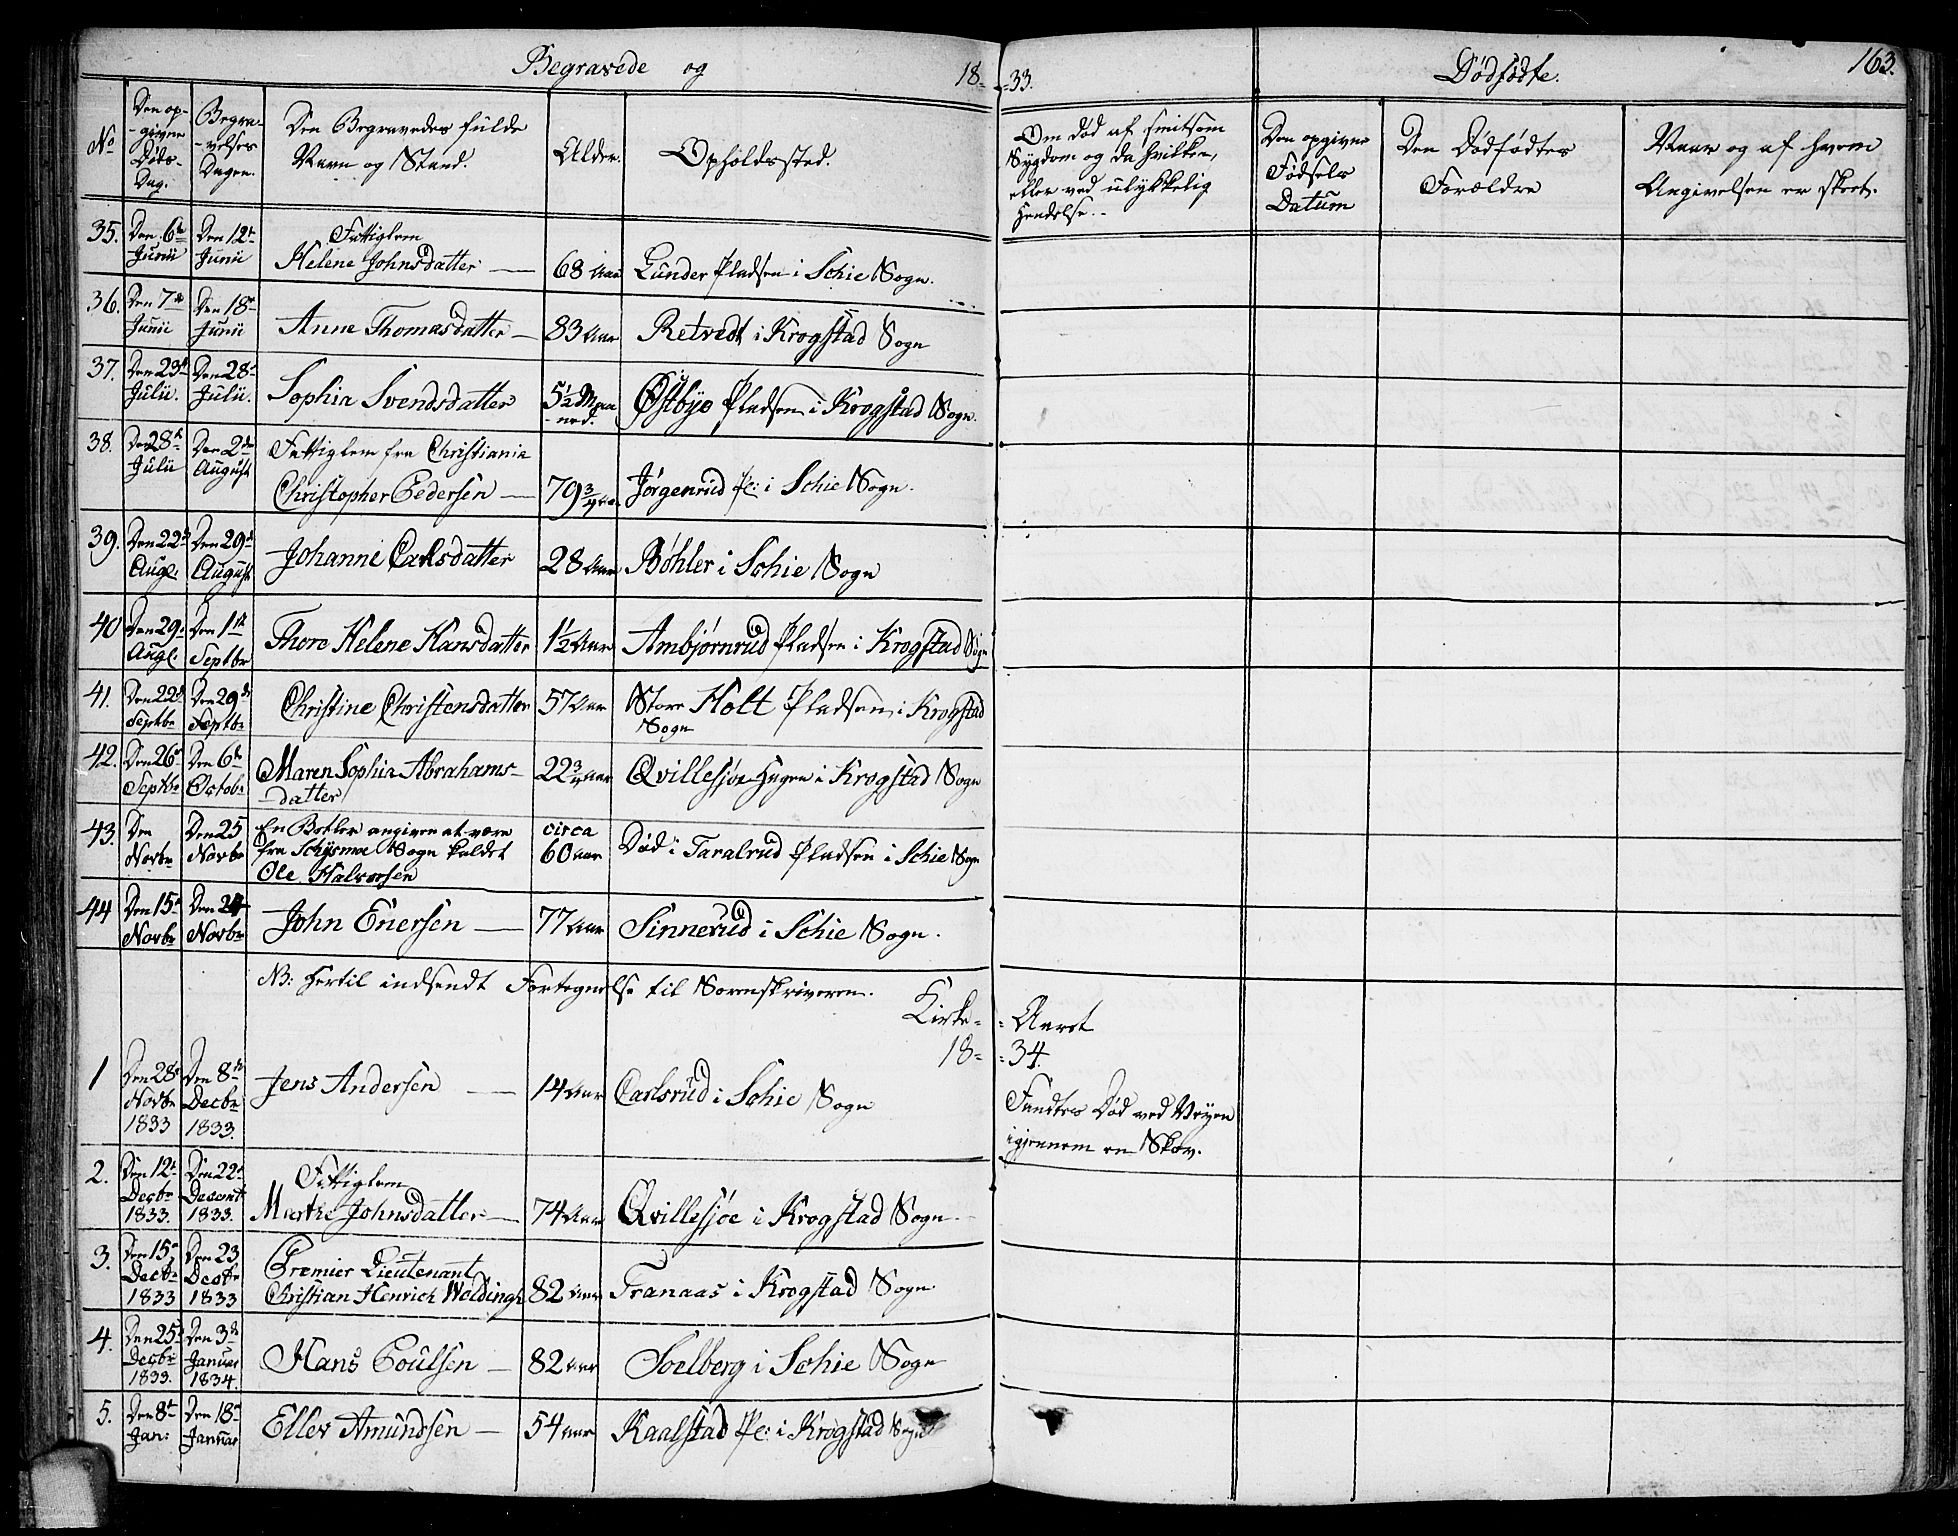 Begravede og 18-
-33. Dødfødte. 163.
No
Den op-
-givne
Døds-
Dag.
Begra-
-velses
Dagen.
Den Begravedes fulde
Navn og Stand.
Alder.
Opholdssted.
Om død af smitsom
Sygdom og da hvilken,
eller ved ulykkelig
Hendelse.
Den opgivne
Fødsels
Datum
Den Dødfødtes
Forældre
Naar og af hvem
Angivelsen er skeet.
35. Den 6te Junii Den 12te Junii Fattiglem
Helene Johnsdatter 68 Aar Lunder Pladsen i Schie Sogn.
36. Den 7de Junii Den 18de Junii Anne Thomasdatter 83 Aar Retvedt i Krogstad Sogn
37. Den 23de Julii. Den 28de Julii. Sophia Svendsdatter 5½ Maaned. Østbye Pladsen i Krogstad Sogn.
38. Den 28de Julii Den 2den August Fattiglem fra Christiania
Christopher Pedersen 79¾ Aar Jørgenrud Pl: i Schie Sogn.
39. Den 22de Augl. Den 29de August Johanne Carlsdatter 28 Aar Bøhler i Schie Sogn
40 Den 29de Augl. Den 1ste Septbr Thore Helene Hansdatter 1½ Aar Ambjørnrud Pladsen i Krogstad Sogn
41. Den 22de Septbr Den 29de Septbr Christine Christensdatter 57 Aar Store Holt Pladsen i Krogstad
Sogn
42. Den 26de Septbr Den 6te Octobr Maren Sophia Abrahams-
-datter 22¾ Aar Qvillesjøe Hagen i Krogstad Sogn
43. Den Novbr Den 25 Novbr En Betler angiven at være
fra Schysmoe Sogn kaldet
Ole Halvorsen circa 60 Aar Død i Taralrud Pladsen i Schie Sogn
44 Den 15de Novbr Den 24 Novbr John Enersen 77 Aar Sinnerud i Schie Sogn.
NB: Hertil indsendt Fortegnelse til Sorenskriveren.
Kirke- -Aaret
18- -34.
1 Den 28de Novbr 1833 Den 8de Decbr 1833. Jens Andersen 14 Aar Carlsrud i Schie Sogn Fandtes Død ved Veyen
igjennem en Skov.
2. Den 12te Decbr 1833. Den 22de Decembr 1833. Fattiglem
Marthe Johnsdatter 74 Aar Qvillesjøe i Krogstad Sogn
3. Den 15de Decbr 1833 Den 23 Decbr 1833 Premier Lieutenant
Christian Henrich Woldingh 82 Aar Tranaas i Krogstad Sogn
4. Den 25de Decbr 1833. Den 3de Januar 1834. Hans Poulsen 82 Aar Soelberg i Schie Sogn
5. Den 8de Jan: Den 18de Januar Ellev Amundsen 54 Aar Kaalstad Pl: i Krogstad Sogn